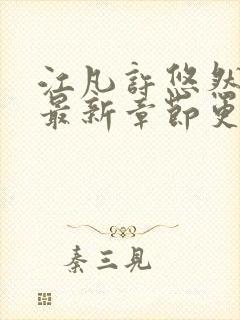 江凡許悠然
最新章節更
秦三見